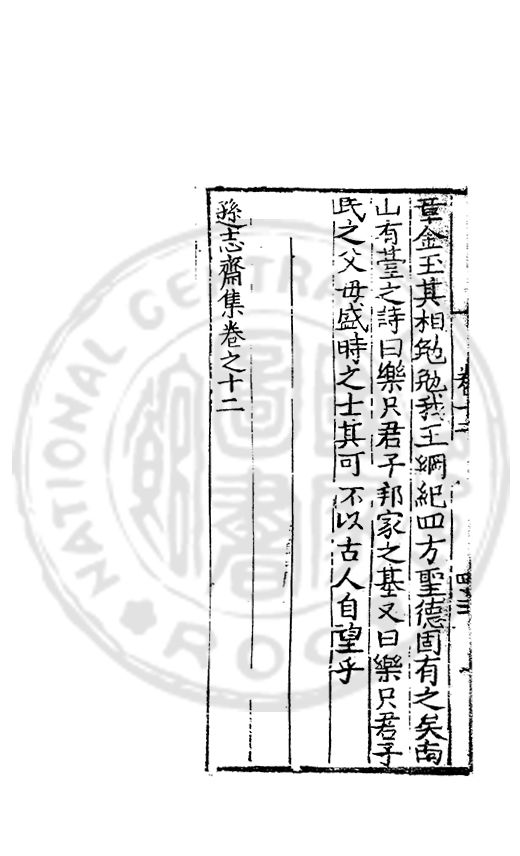 卷十二 四十三
章金玉其相勉勉我王綱紀四方聖德固有之矣南
山有臺之詩曰樂只君子邦家之基又曰樂只君子
民之父母盛時之士其可不以古人自望乎
遜志齋集卷之十二
NATIONAL CENTRAL
ROC